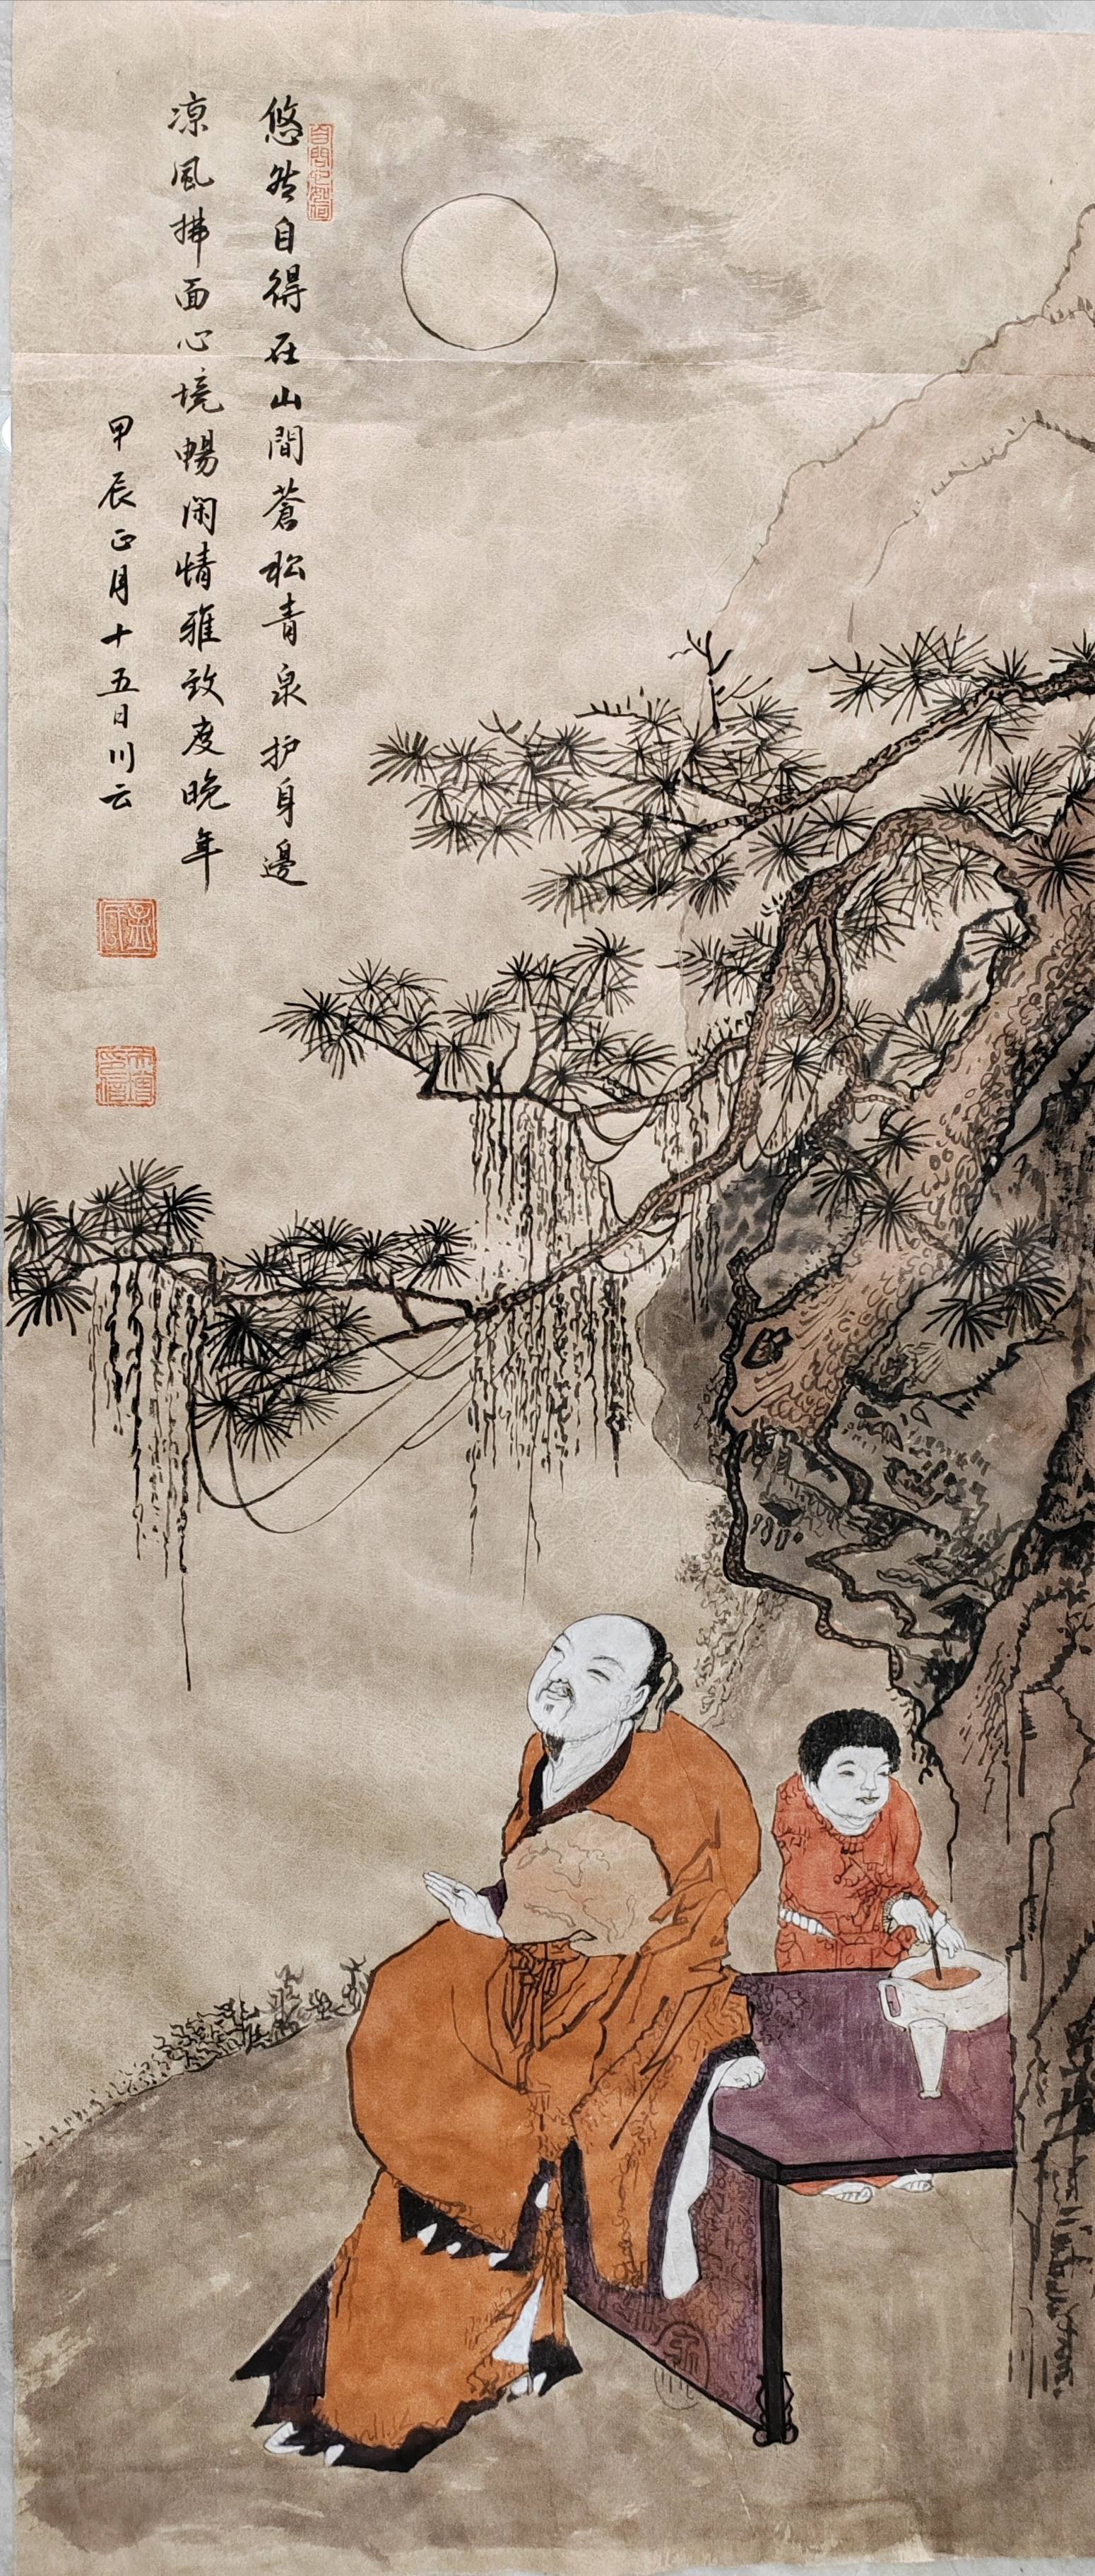 悠然自得在山間蒼松青泉护身邊
凉風拂面心境暢闲情雅致度晚年
甲辰正月十五日川云